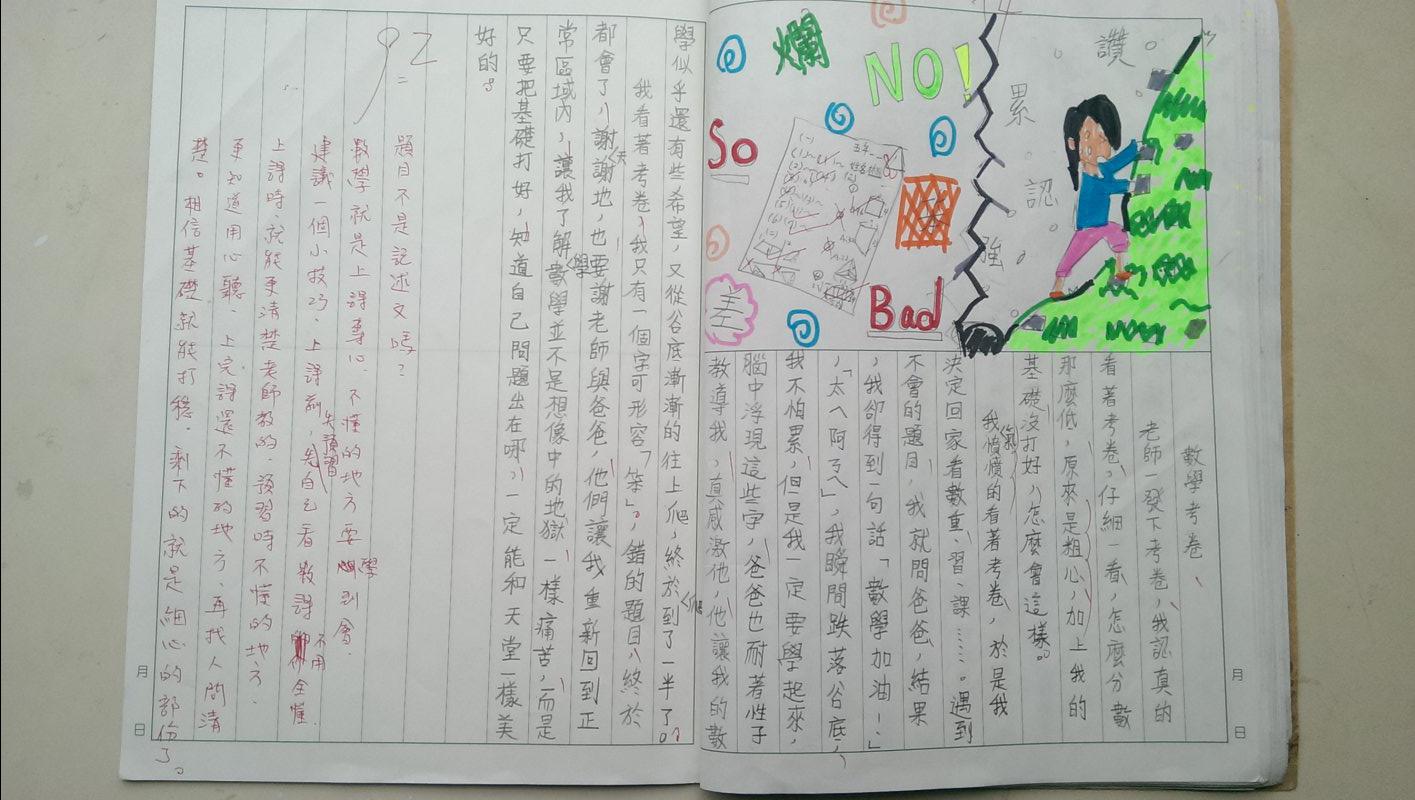 讚
累
認
強
爛
NO!
So
差
Bad
數學考卷
老師一發下考卷,我認真的
看著考卷,仔細一看,怎麼分數
那麼低,原來是粗心,加上我的
基礎沒打好,怎麼會這樣。
我憤憤的看著考卷,於是我
決定回家看數重、習、課……。遇到
不會的題目,我就問爸爸,結果
,我卻得到一句話「數學加油!」
,「太ㄟ阿ㄢㄟ」,我瞬間跌落谷底,
我不怕累,但是我一定要學起來,
腦中浮現這些字,爸爸也耐著性子
教導我,真感激他,他讓我的數
學似乎還有些希望,又從谷底漸漸的往上爬,終於爬到了一半了。
我看著考卷,我只有一個字可形容「笨」,錯的題目,終於
都會了,謝天謝地,也要謝老師與爸爸,他們讓我重新回到正
常區域內,讓我了解數學並不是想像中的地獄一樣痛苦,而是
只要把基礎打好,知道自己問題出在哪,一定能和天堂一樣美
好的。
92
題目不是記述文嗎?
數學就是上課專心、不懂的地方要學到會.
建議一個小技巧、上課前,先預習,先自己看數課,不用全懂.
上課時、就能更清楚老師教的.預習時不懂的地方.
更知道用心聽、上完課還不懂的地方、再找人問清
楚。相信基礎就能打穩.剩下的就是細心的部份了。
月
日
月
日